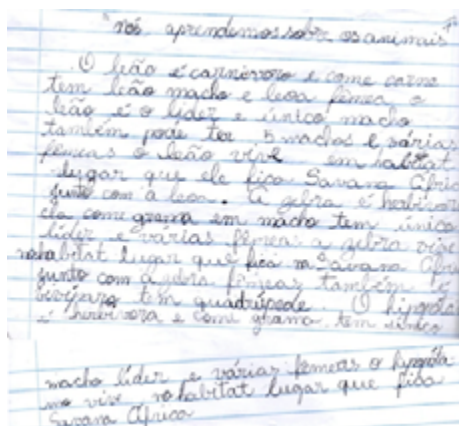 "nós aprendemos sobre os animais"
O leão é carnivoro e come carne
tem leão macho e leoa fêmea o
leão é o lider e único macho
também pode ter 5 machos e várias
fêmeas o leão vive em habitat
lugar que ele fica Savana Áfric
junto com a leoa. A zebra é herbivor
ela come grama em macho tem único
líder e várias fêmeas a zebra vive
no habitat lugar que fica na Savana
junto com a zebra fêmeas também
tem quadrúpede. O
é herbivora e come grama tem único
macho líder e várias femeas o
vive no habitat lugar que fica
Savana África